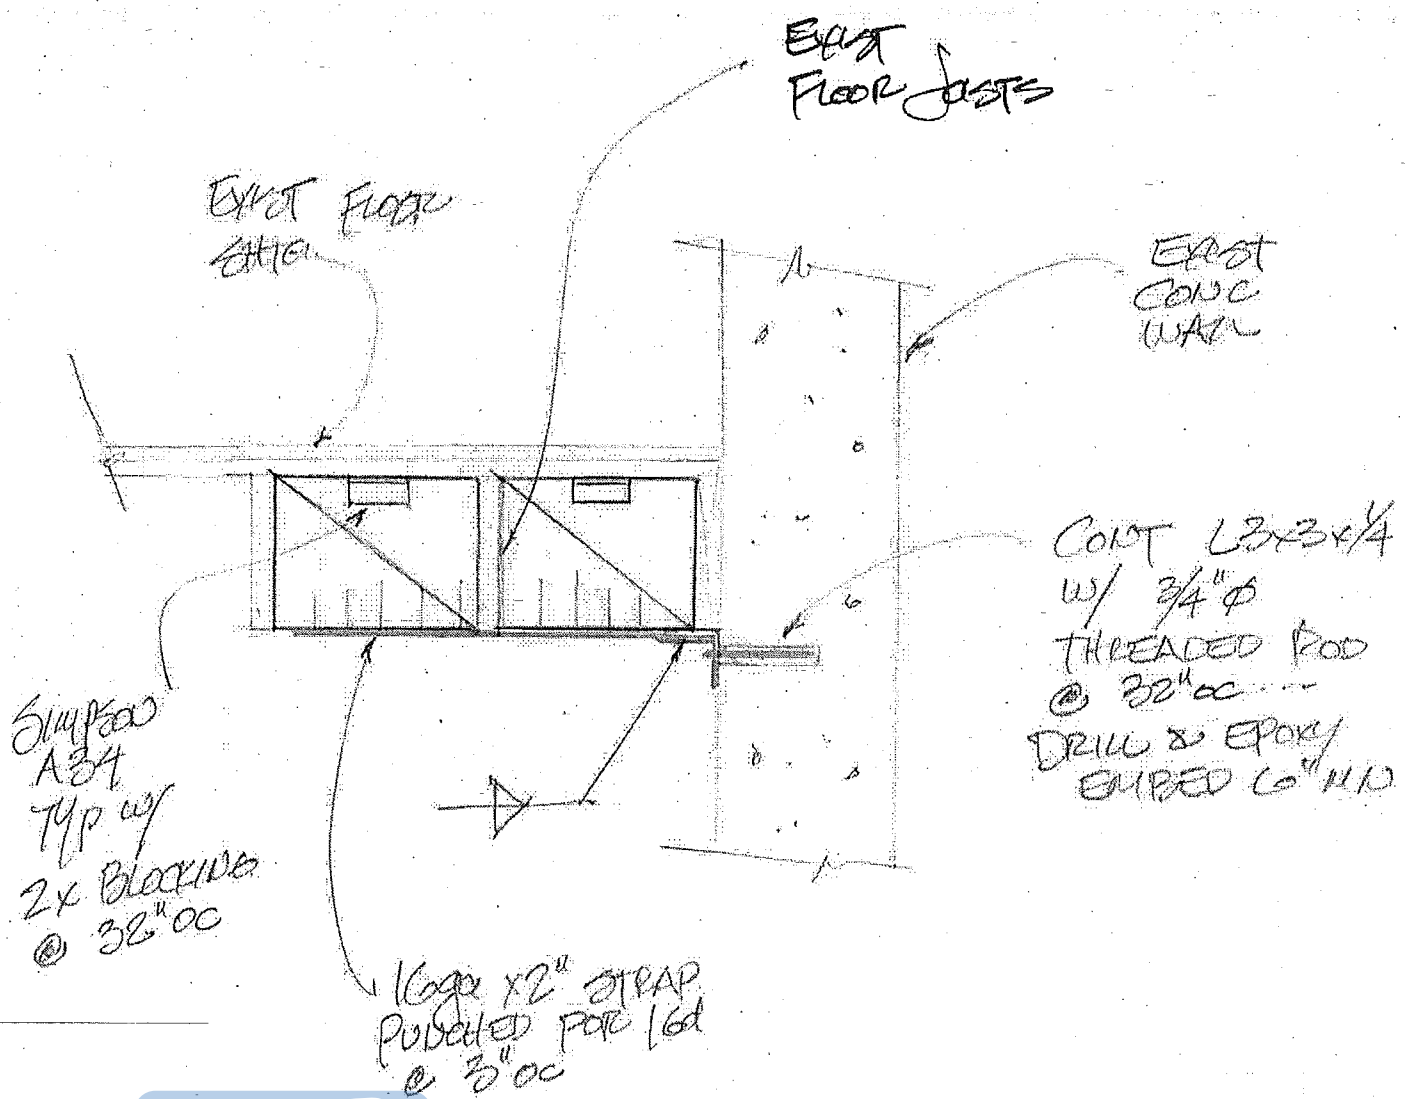 EXIST
FLOOR JOISTS
EXIST FLOOR
SHTG
EXIST
CONC
WALL
CONT L3x3x1/4
W/ 3/4"φ
THREADED ROD
@ 32"OC
DRILL & EPOXY
EMBED 6" MIN
SIMPSON
A34
TYP W/
2x BLOCKING
@ 32"OC
16ga x2" STRAP
PUNCHED FOR 16d
@ 3"OC